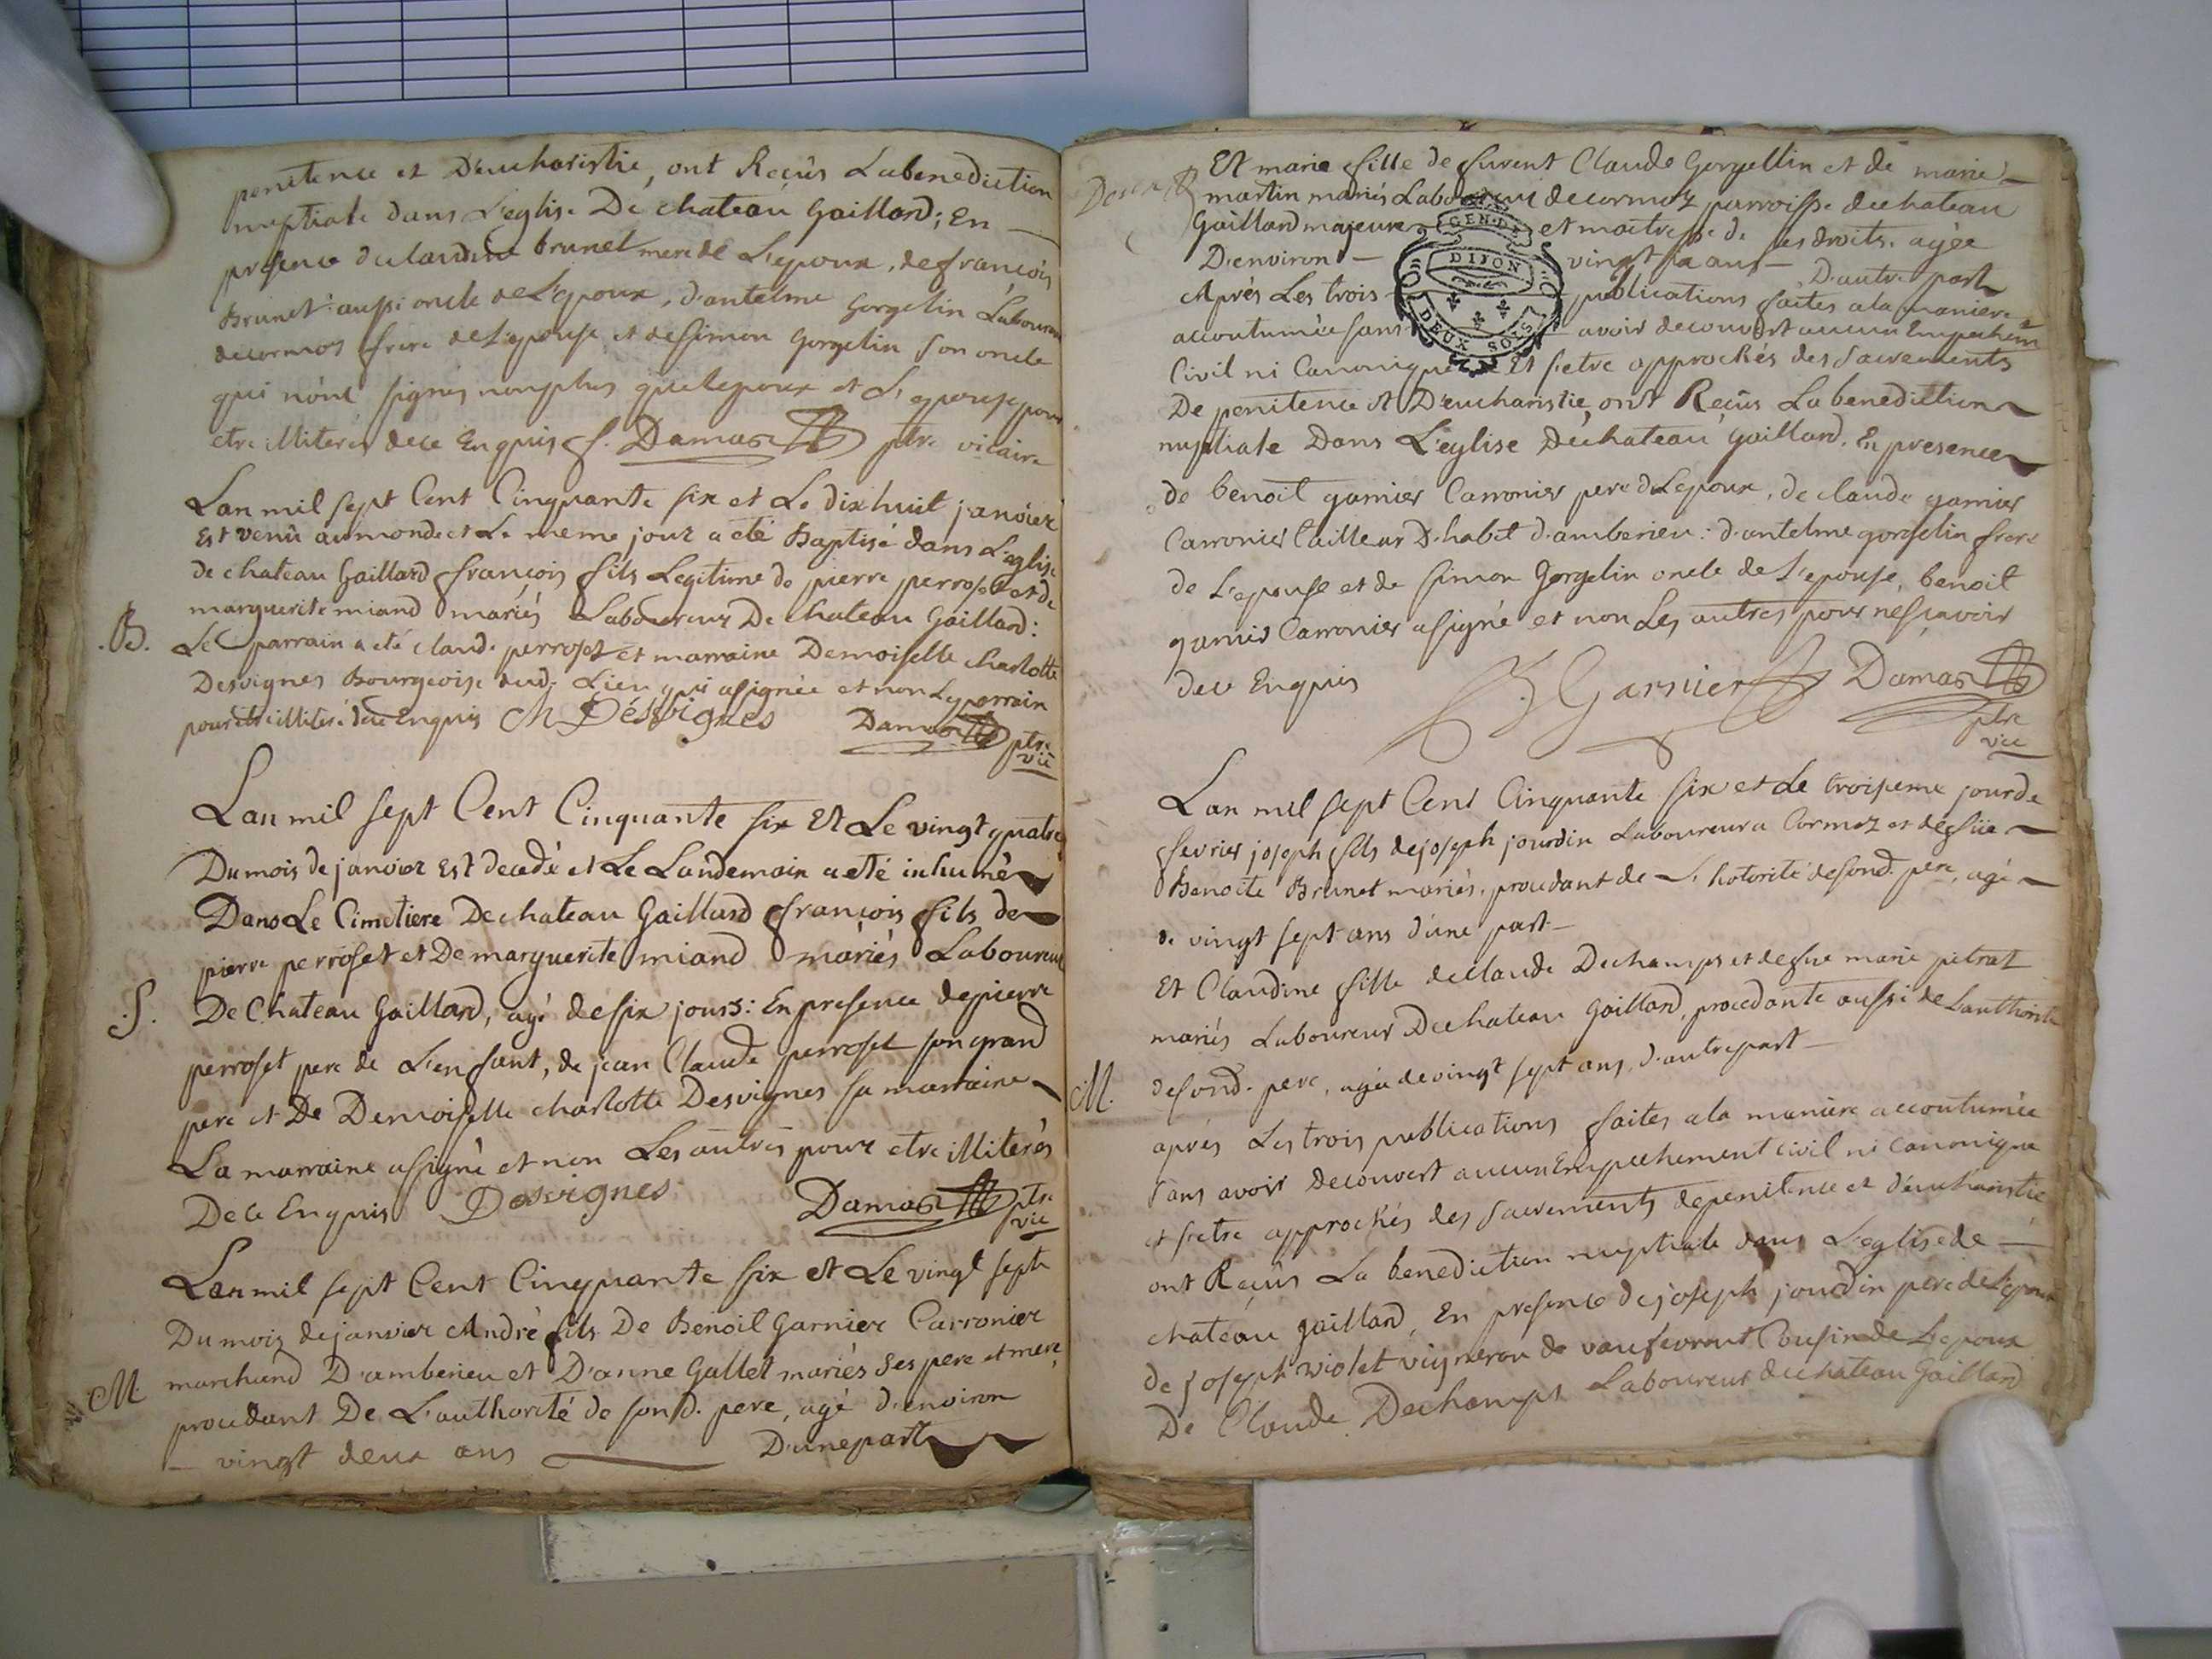 penitence et D'eucharistie, ont Reçûs La benediction
nuptiale dans L'eglise De chateau Gaillard; En
presence de claudine brunet mere de L'epoux, de françois
Brunet aussi oncle de L'epoux, d'antelme Gorgelin Laboureur
de cormos frere de L'epouse et de Simon Gorgelin son oncle
qui n'ont signés nonplus que lepoux et L'epouse pour
etre illiterés de ce Enquis f. Damas ptre vicaire
Lan mil sept Cent Cinquante six et Le dix huit janvier
Est venû au monde et Le meme jour a eté Baptisé dans L'eglise
de chateau Gaillard françois fils Legitime de pierre perroset et de
marguerite miand mariés Laboureur De chateau Gaillard:
.B. Le parrain a eté claude perroset et marraine Demoiselle charlotte
Desvignes Bourgeoise dud. Lieu qui a signée et non Le parrain
pour etre illiteré de ce Enquis Ch Désvignes Damas ptre
vic
Lan mil sept Cent Cinquante six Et Le vingt quatre
Du mois de janvier Est decedé et Le Landemain a eté inhumé
Dans Le Cimetiere De chateau Gaillard françois fils de
pierre perroset et De marguerite miand mariés Laboureur
.S. De Chateau Gaillard, agé de six jours: En presence de pierre
perroset pere de L'enfant, de jean Claude perroset son grand
pere et De Demoiselle charlotte Desvignes sa marraine
La marraine a signé et non Les autres pour etre illiterés
De ce Enquis Desvignes Damas ptre
vic
Lan mil sept Cent Cinquante six et Le vingt sept
Du mois de janvier André fils De Benoit Garnier Carronier
M. marchand D'amberieu et D'anne Gallet mariés ses pere et mere,
procedant De L'authorité de sond. pere, agé d'environ
vingt deux ans D'une part
Et marie fille de furent Claude Gorgellin et de marie
martin mariés Laboureur de cormoz parroisse de chateau
Gaillard majeure et maitresse de ses droits. agée
D'environ vingt six ans D'autre part
Après Les trois publications faites a la maniere
accoutumée sans avoir decouvert aucun Empechem
Civil ni Canonique Et s'etre approchés des Sacrements
De penitence et D'eucharistie, ont Reçûs La benediction
nuptiale Dans L'eglise De chateau Gaillard. En presence
de benoit garnier Carronier pere de Lepoux, de claude garnier
Carronier tailleur D'habit d'amberieu: d'antelme gorgelin frere
de L'epouse et de Simon Gorgelin oncle de L'epouse, benoit
garnier Carronier a signé et non Les autres pour ne sçavoir
de ce Enquis B Garnier Damas
ptre
vic
GEN. DE
DIJON
DEUX SOLS
Lan mil sept Cent Cinquante six et Le troisieme jour de
fevrier joseph fils de joseph jourdin Laboureur a Cormoz et de füe
Benoite Brunet mariés, procedant de L'hotorité de sond. pere, agé
de vingt sept ans d'une part
Et Claudine fille de claude Dechamps et de fue marie pitrat
mariés Laboureur De chateau Gaillard, procedante aussi de Lauthorité
M. de sond. pere, agée de vingt sept ans, d'autre part
après Les trois publications faites a la manière accoutumée
sans avoir decouvert aucun Empechement civil ni canonique
et s'etre approchés des sacrements de penitence et d'eucharistie
ont Reçûs La benediction nuptiale dans L'eglise de
chateau gaillard, En presence de joseph jourdin pere de L'epoux
de joseph violet vigneron de vaufevrent Cousin de L'epoux
De Claude Dechamps Laboureur de chateau Gaillard